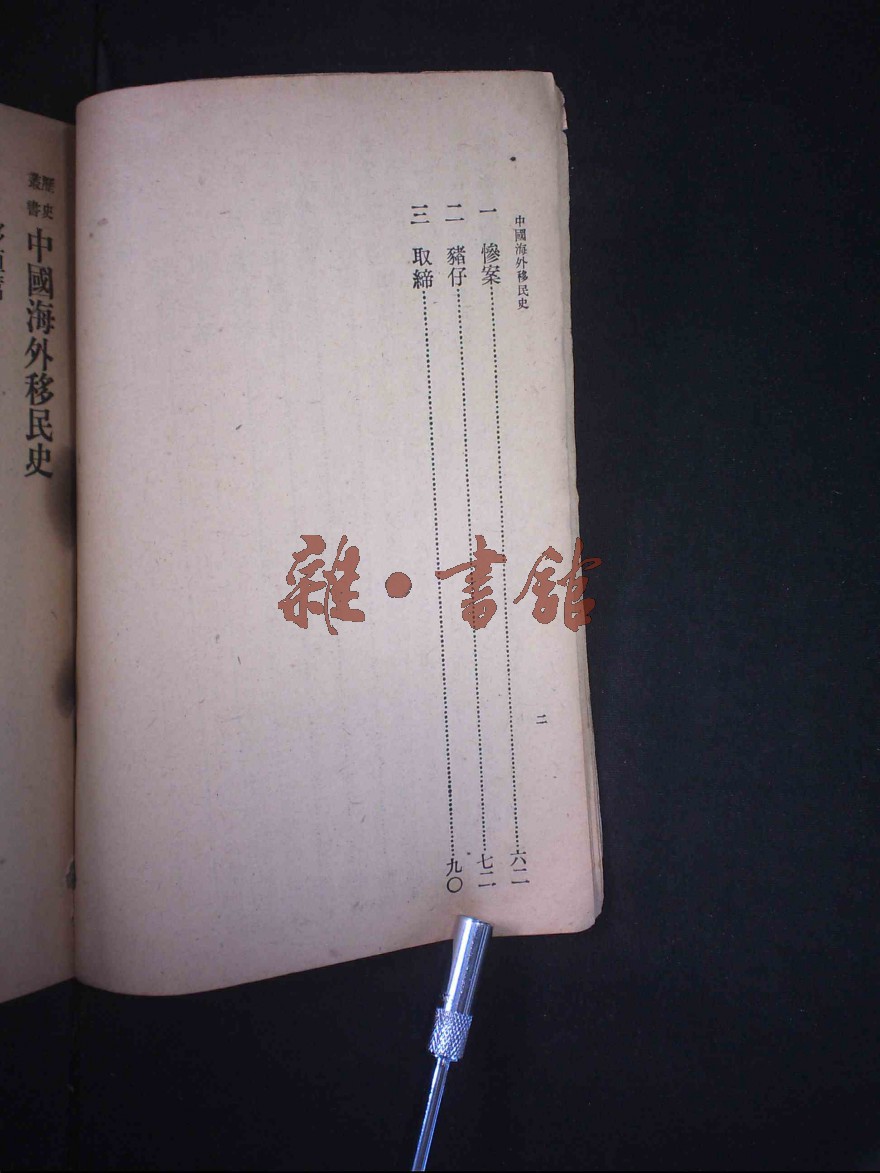 中國海外移民史
二
一 慘案 六二
二 豬仔 七二
三 取締 九〇
歷史
叢書
中國海外移民史
雜·書館